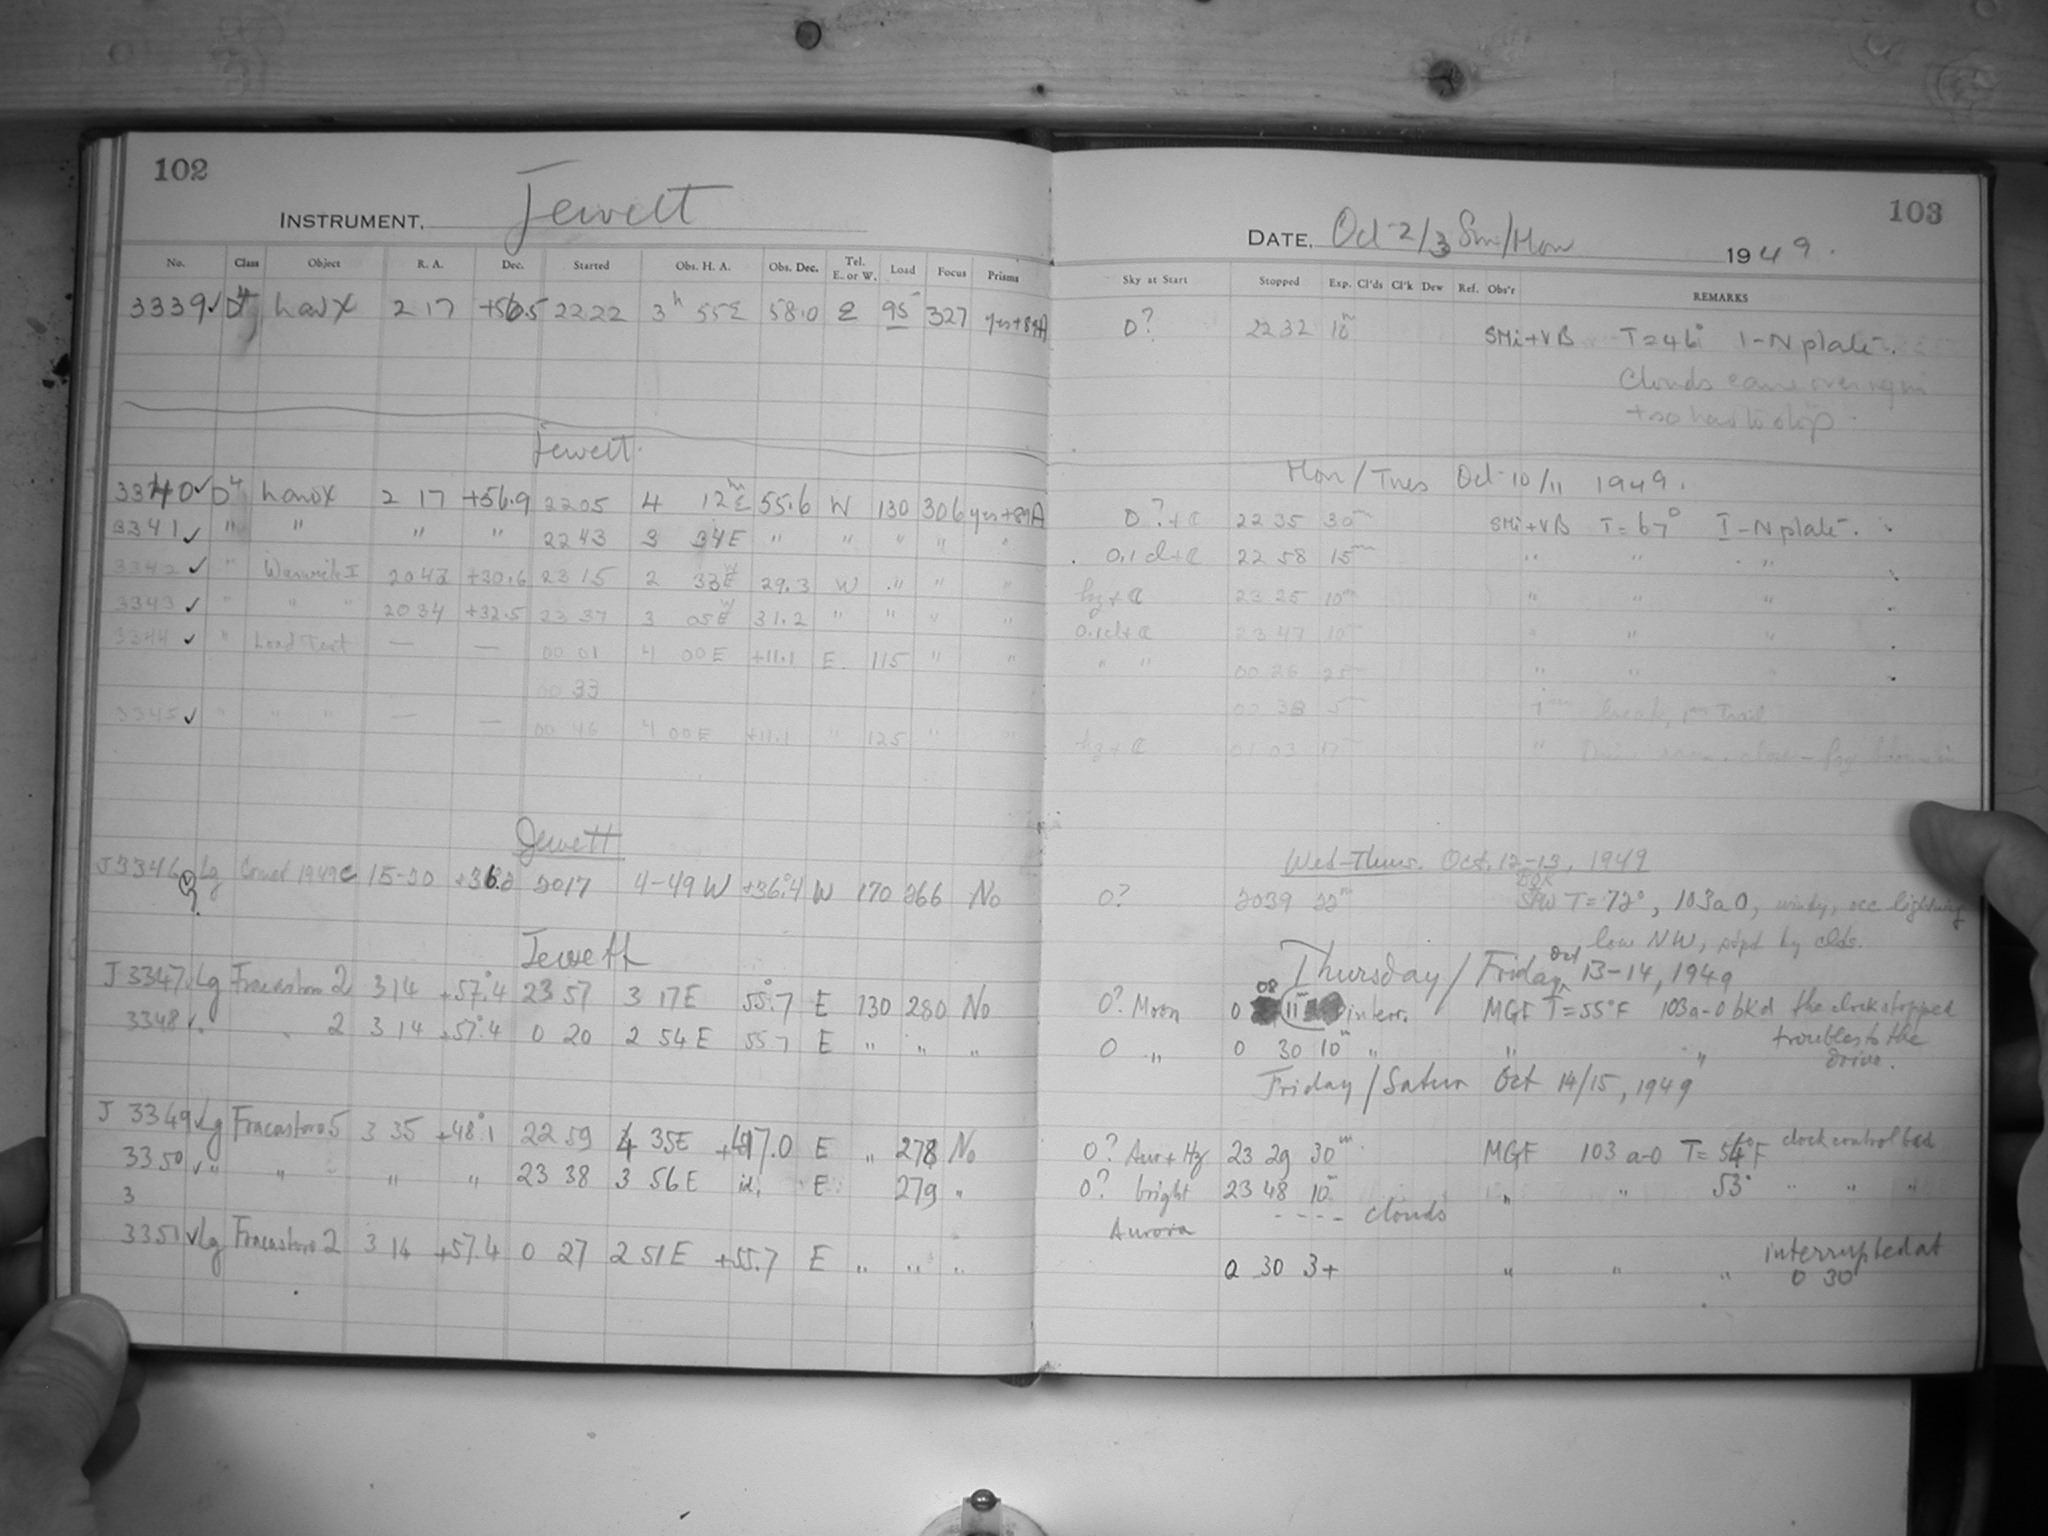 102
INSTRUMENT. Jewett
No. Class Object R. A. Dec. Started Obs. H. A. Obs. Dec. Tel. E. or W. Load Focus Prisms
3339 ✓ D4 h and X 2 17 +56.5 2222 3h 55E 58.0 E 95 327 yes+89A
Jewett
3340 ✓ D4 h and X 2 17 +56.9 2205 4 12mE 55.6 W 130 306 yes+89A
3341 ✓ " " " " 22 43 3 34E " " " " "
3342 ✓ " Warwick I +30.6 23 15 2 33 W 29.3 W " " "
3343 ✓ " " " 20 34 +32.5 23 37 3 05 W 31.2 " " " "
3344 ✓ " Load Test — — 00 01 4 00E +11.1 E. 115 " "
00 33
3345 ✓ " " " — — 00 46 4 00E +11.1 " 125 " "
Jewett
J3346 Lg Comet 1949c 15-30 2017 4-49 W +36°.4 W 170 266 No
?
Jewett
J 3347 ✓ Lg Fracastoro 2 3 14 +57°.4 23 57 3 17E 55°.7 E 130 280 No
3348 ✓ . " 2 3 14 +57.4 0 20 2 54E 55.7 E " " "
J 3349 ✓ Lg Fracastoro 5 3 35 +48°.1 22 59 4 35E +47.0 E " 278 No
3350 ✓ " " " " 23 38 3 56E id. E " 279 "
3
3351 ✓ Lg Fracastoro 2 3 14 +57.4 0 27 2 51E +55.7 E " " "
103
DATE. Oct 2/3 Sun/Mon 1949.
Sky at Start Stopped Exp. Cl'ds Cl'k Dew Ref. Obs'r REMARKS
0? 2232 10m SMi+VB T=46° I-N plate.
Clouds came over again
+ so had to stop.
Mon/Tues Oct 10/11 1949.
0?+☾ 22 35 30m SMi+VB T=67° I-N plate.
0.1cl+☾ 22 58 15m " " "
hz+☾ 23 25 10m " " "
0.1cl+☾ 23 47 10m " " "
" " 00 26 25m " " "
00 38 5m break, 1m Trail
hz+☾ 01 03 17m " fog
Wed-Thurs. Oct. 12-13, 1949
0? 2039 22m T=72°, 103aO, windy, occ lightning
low NW, stpd by clds.
Thursday/Friday Oct 13-14, 1949
0? Moon 0 08 11m interr. MGF T=55°F 103a-O bkd the clock stopped
0 " 0 30 10m " " " troubles to the
drive.
Friday/Satur Oct 14/15, 1949
0? Aur+Hz 23 29 30m MGF 103 a-O T=54°F clock control bad
0? bright 23 48 10m " " 53° " " "
Aurora - - - - clouds
0 30 3+ " " " interrupted at
0 30